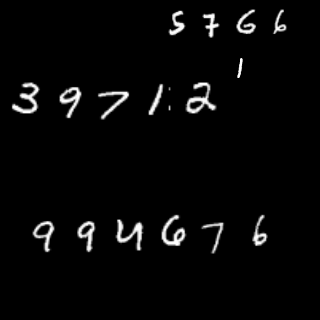 5766
1
39712
994676